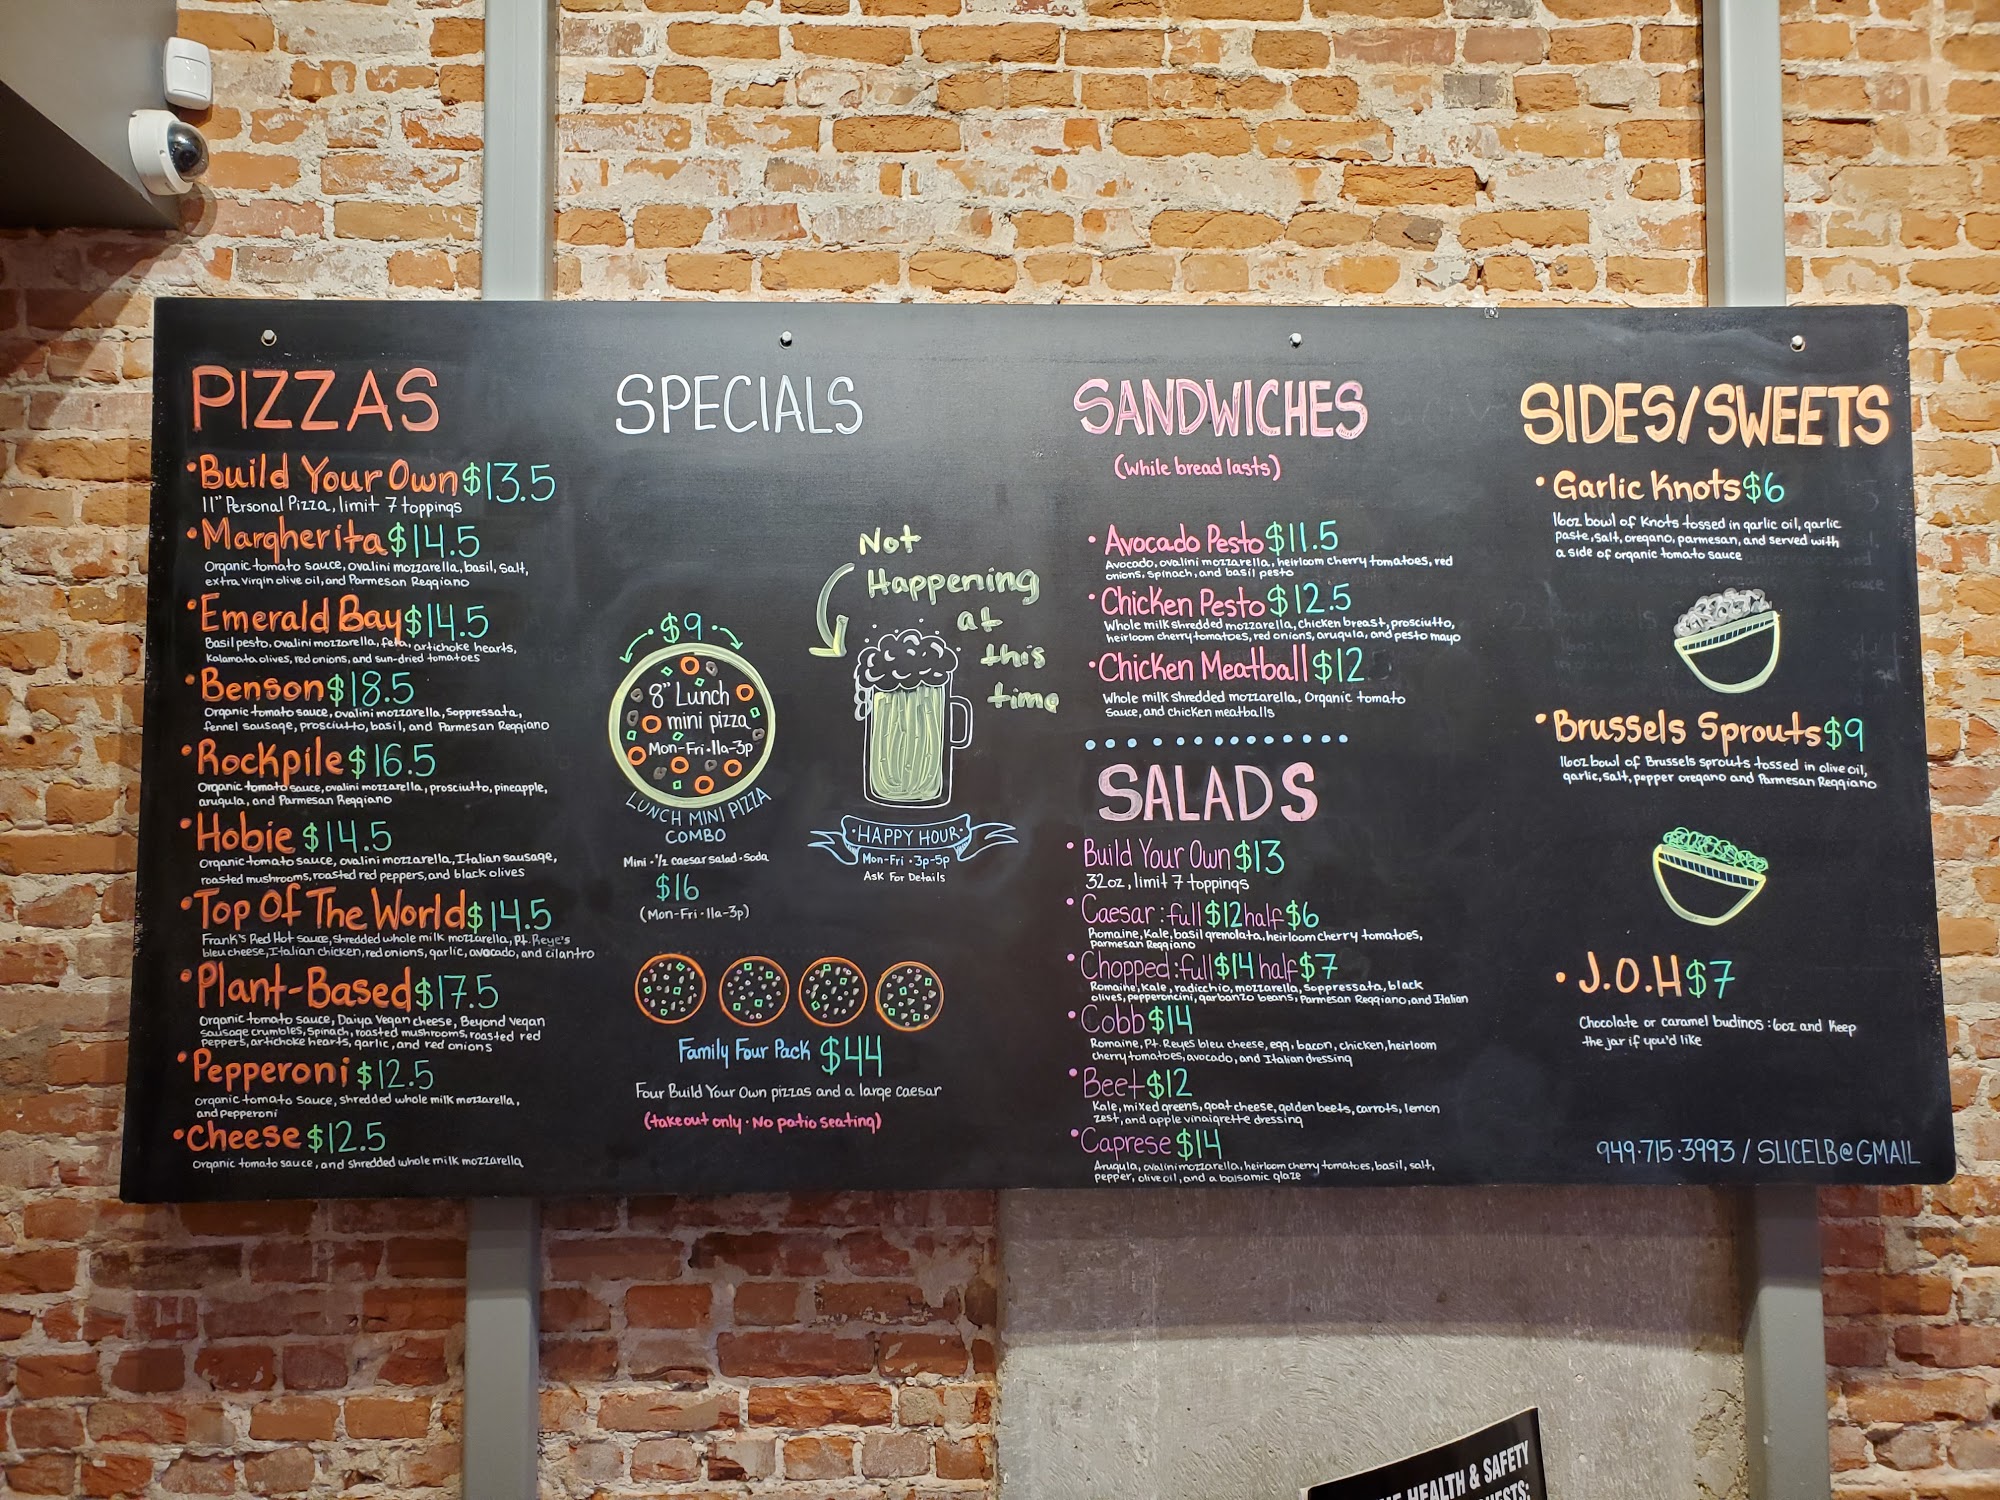 PIZZAS
•Build Your Own $13.5
11" Personal Pizza, limit 7 toppings
•Margherita $14.5
Organic tomato sauce, ovalini mozzarella, basil, salt,
extra virgin olive oil, and Parmesan Reggiano
•Emerald Bay $14.5
Basil pesto, ovalini mozzarella, feta, artichoke hearts,
Kalamata olives, red onions, and sun-dried tomatoes
•Benson $18.5
Organic tomato sauce, ovalini mozzarella, Soppressata,
fennel sausage, prosciutto, basil, and Parmesan Reggiano
•Rockpile $16.5
Organic tomato sauce, ovalini mozzarella, prosciutto, pineapple,
arugula, and Parmesan Reggiano
•Hobie $14.5
Organic tomato sauce, ovalini mozzarella, Italian sausage,
roasted mushrooms, roasted red peppers, and black olives
•Top Of The World $14.5
Frank's Red Hot sauce, shredded whole milk mozzarella, Pt. Reye's
bleu cheese, Italian chicken, red onions, garlic, avocado, and cilantro
•Plant-Based $17.5
Organic tomato sauce, Daiya Vegan cheese, Beyond vegan
sausage crumbles, Spinach, roasted mushrooms, roasted red
peppers, artichoke hearts, garlic, and red onions
•Pepperoni $12.5
organic tomato sauce, shredded whole milk mozzarella,
and pepperoni
•Cheese $12.5
Organic tomato sauce, and shredded whole milk mozzarella
SPECIALS
$9
8" Lunch
mini pizza
Mon-Fri•11a-3p
LUNCH MINI PIZZA
COMBO
Mini • 1/2 caesar salad • Soda
$16
(Mon-Fri•11a-3p)
Not
Happening
at
this
time
•HAPPY HOUR•
Mon-Fri • 3p-5p
Ask For Details
Family Four Pack $44
Four Build Your Own pizzas and a large caesar
(takeout only • No patio seating)
SANDWICHES
(while bread lasts)
•Avocado Pesto $11.5
Avocado, ovalini mozzarella, heirloom cherry tomatoes, red
onions, spinach, and basil pesto
•Chicken Pesto $12.5
Whole milk shredded mozzarella, Chicken breast, prosciutto,
heirloom cherry tomatoes, red onions, arugula, and pesto mayo
•Chicken Meatball $12
Whole milk shredded mozzarella, Organic tomato
Sauce, and chicken meatballs
SALADS
•Build Your Own $13
32oz, limit 7 toppings
•Caesar: full $12 half $6
Romaine, Kale, basil gremolata, heirloom cherry tomatoes,
Parmesan Reggiano
•Chopped: full $14 half $7
Romaine, Kale, radicchio, mozzarella, soppressata, black
olives, pepperoncini, garbanzo beans, Parmesan Reggiano, and Italian
•Cobb $14
Romaine, Pt. Reyes bleu cheese, egg, bacon, chicken, heirloom
cherry tomatoes, avocado, and Italian dressing
•Beet $12
Kale, mixed greens, goat cheese, golden beets, carrots, lemon
zest, and apple vinaigrette dressing
•Caprese $14
Arugula, ovalini mozzarella, heirloom cherry tomatoes, basil, salt,
pepper, olive oil, and a balsamic glaze
SIDES/SWEETS
•Garlic Knots $6
16oz bowl of Knots tossed in garlic oil, garlic
paste, salt, oregano, parmesan, and served with
a side of organic tomato sauce
•Brussels Sprouts $9
16oz bowl of Brussels sprouts tossed in olive oil,
garlic, salt, pepper oregano and Parmesan Reggiano
•J.O.H $7
Chocolate or caramel budinos: 6oz and Keep
the jar if you'd like
949•715•3993 / SLICELB@GMAIL
HEALTH & SAFETY